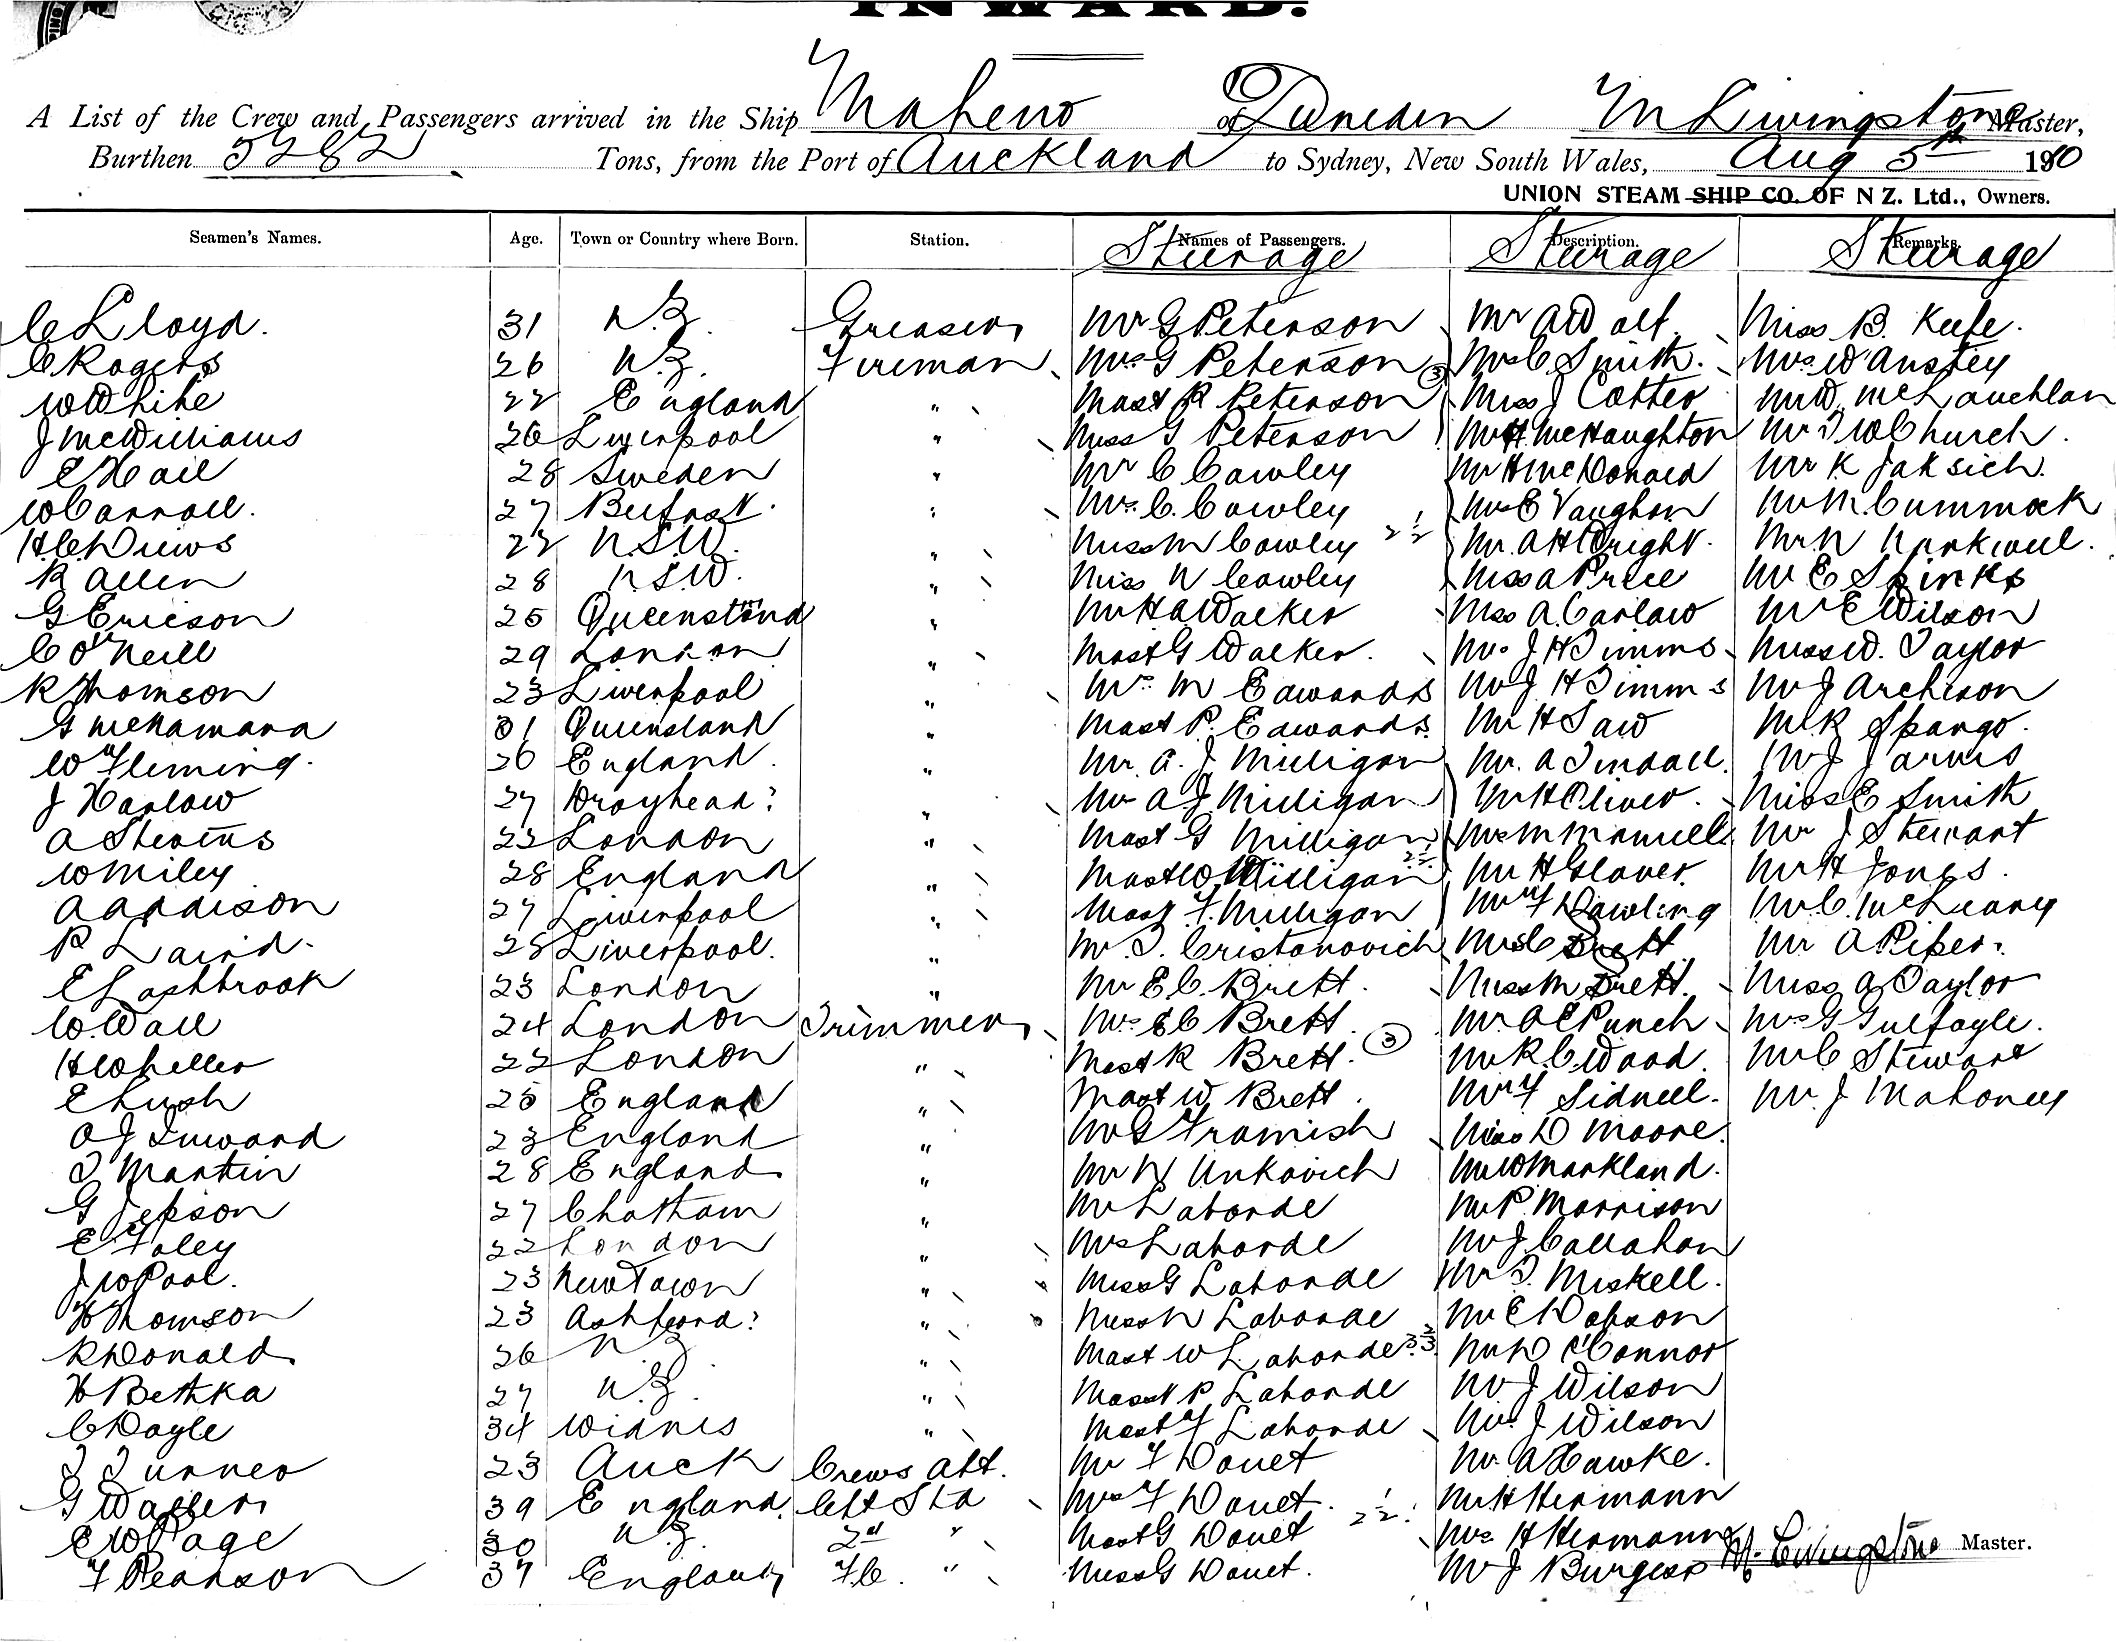 INWARD.
A List of the Crew and Passengers arrived in the Ship Maheno of Dunedin M Livingstone Master,
Burthen 5282 Tons, from the Port of Auckland to Sydney, New South Wales, Aug 5th 1910
UNION STEAM SHIP CO. OF N Z. Ltd., Owners.
Seamen's Names. Age. Town or Country where Born. Station. Names of Passengers. Description. Remarks.
Steerage Steerage Steerage
C Lloyd. 31 N.Z. Greaser Mr G Peterson Mr A Miss B. Keefe.
C Rogers 26 N.Z. Fireman Mrs G Peterson 3 Mrs C Smith. Mrs W Anstey
W White 22 England " Mast R Peterson Miss J Cotter Mr W McLauchlan
J McWilliams 26 Liverpool " Miss G Peterson Mr H McNaughton Mr T W Church.
E Hail 28 Sweden " Mr C Cowley Mr H McDonald Mr K Jaksich.
W Carroll. 27 Belfast. " Mrs C. Cowley Mrs E Vaughan Mr M Cummock
H C Drews 22 N.S.W. " Miss M Cowley 2 1/2 Mr. A H Wright. Mr N
R Allen 28 N.S.W. " Miss N Cowley Miss A Price Mr E Spinks
G Ericson 25 " Mr H A Walker Miss A. Carlaw Mr E Wilson
C O'Neill 29 London " Mast G Walker. Mrs J H Timms Miss W. Taylor
R Thomson 23 Liverpool " Mrs M Edwards Mr J H Timms Mr J Archison
G McNamara 31 Queensland " Mast P. Edwards. Mr H Saw Mr K Spargo.
W Fleming. 26 England. " Mr. A. J Milligan Mr. A Tindall. Mr J Jarvis
J Harlow 27 Droyhead? " Mrs A J Milligan Mr H Oliver. Miss E Smith
A Stevens 22 London " Mast G Milligan Mrs M Manuell Mr J Stewart
W Miley 28 England " Mast W Milligan 2 1/2 Mr H Glover. Mr H Jones.
A Addison 27 Liverpool " Mast F. Milligan Mr F Dowling Mr C. McLeary
P Laird. 28 Liverpool. " Mr T. Cristonovich Mrs C Brett Mr A Piper.
E Lashbrook 23 London " Mr E C. Brett. Miss M Brett. Miss A Taylor
W. Wall 24 London Trimmer Mrs E C Brett. Mr. A E Punch Mrs G Guilfoyle.
H Wheller 22 London " Mast R Brett. 3 Mr R. C. Wood. Mr C Stewart
E Lush 25 England " Mast W Brett. Mr F Sidnell. Mr. J Mahoney
A J Inward 23 England " Mr G Framish Miss D Moore.
T Martin 28 England " Mr N Unkovich Mr W Markland.
G Jepson 27 Chatham " Mr Laborde Mr P. Morrison
E Foley 22 London " Mrs Laborde Mr J Callahan
J W Pool. 23 Newtown " Miss G Laborde Mr T. Miskell.
H Thomson 23 Ashford? " Miss N Laborde Mr E Dobson
R Donald 26 N Z " Mast W Laborde Mr D O'Connor
H Bethka 27 N.Z. " Mast P Laborde Mr J Wilson
C Doyle 34 Widnes " Mast F Laborde Mrs J Wilson
T Turner 23 Auck Crews Att. Mr F Douet Mr. A Hawke.
G Walter 39 England. Chf Std Mrs F Douet. 2 1/2. Mr H Hermann
C W Page 30 N.Z. 2nd " Mast G Douet Mrs H Hermann M. Livingstone Master.
F Pearson 37 England F.C. " Miss G Douet. Mr J Burgess